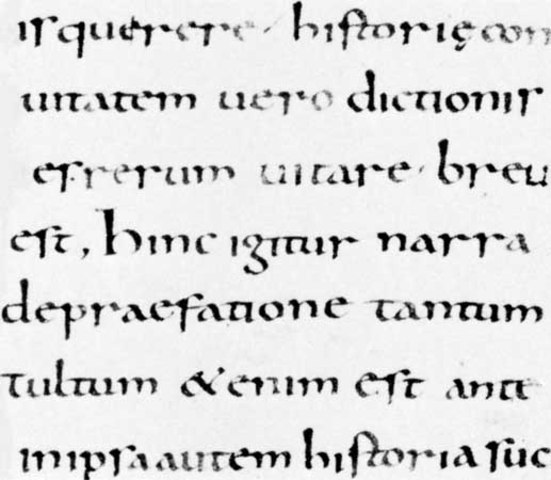 isquerere· historię con
uitatem uero dictionis
esrerum uitare· breu
est, hinc igitur narra
depraefatione tantum
tultum &enim est ante
inipsaautem historia suc